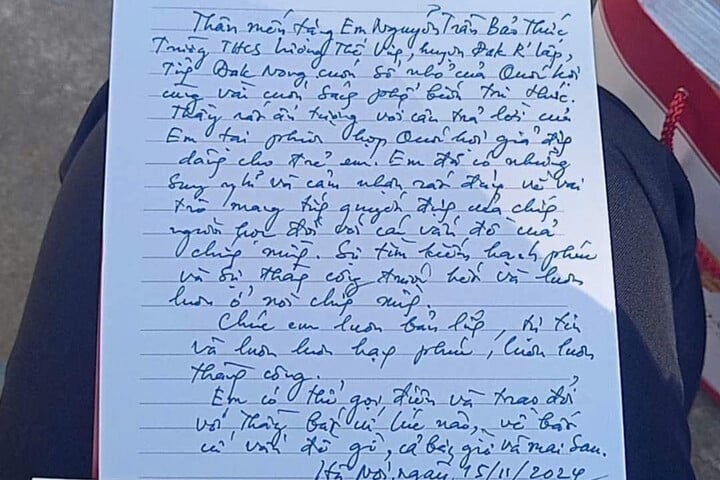 Thân mến tặng Em Nguyễn Trần Bảo Thúc
Trường THCS Lương Thế Vinh, huyện Đak R'lấp,
Tỉnh Đak Nong cuốn sổ nhỏ của Quốc hội
cùng vài cuốn sách phổ biến tri thức.
Thầy rất ấn tượng với câu trả lời của
Em tại phiên họp Quốc hội giả định
dành cho trẻ em. Em đã có những
suy nghĩ và cảm nhận rất đúng về vai
trò mang tính quyết định của chính
người học đối với các vấn đề của
chính mình. Sự tìm kiếm hạnh phúc
và sự thành công trước hết và luôn
luôn ở nơi chính mình.
Chúc em luôn bản lĩnh, tự tin
và luôn luôn hạnh phúc, luôn luôn
thành công.
Em có thể gọi điện và trao đổi
với Thầy bất cứ lúc nào, về bất
cứ vấn đề gì, cả bây giờ và mai sau.
Hà Nội, ngày 15/11/2024